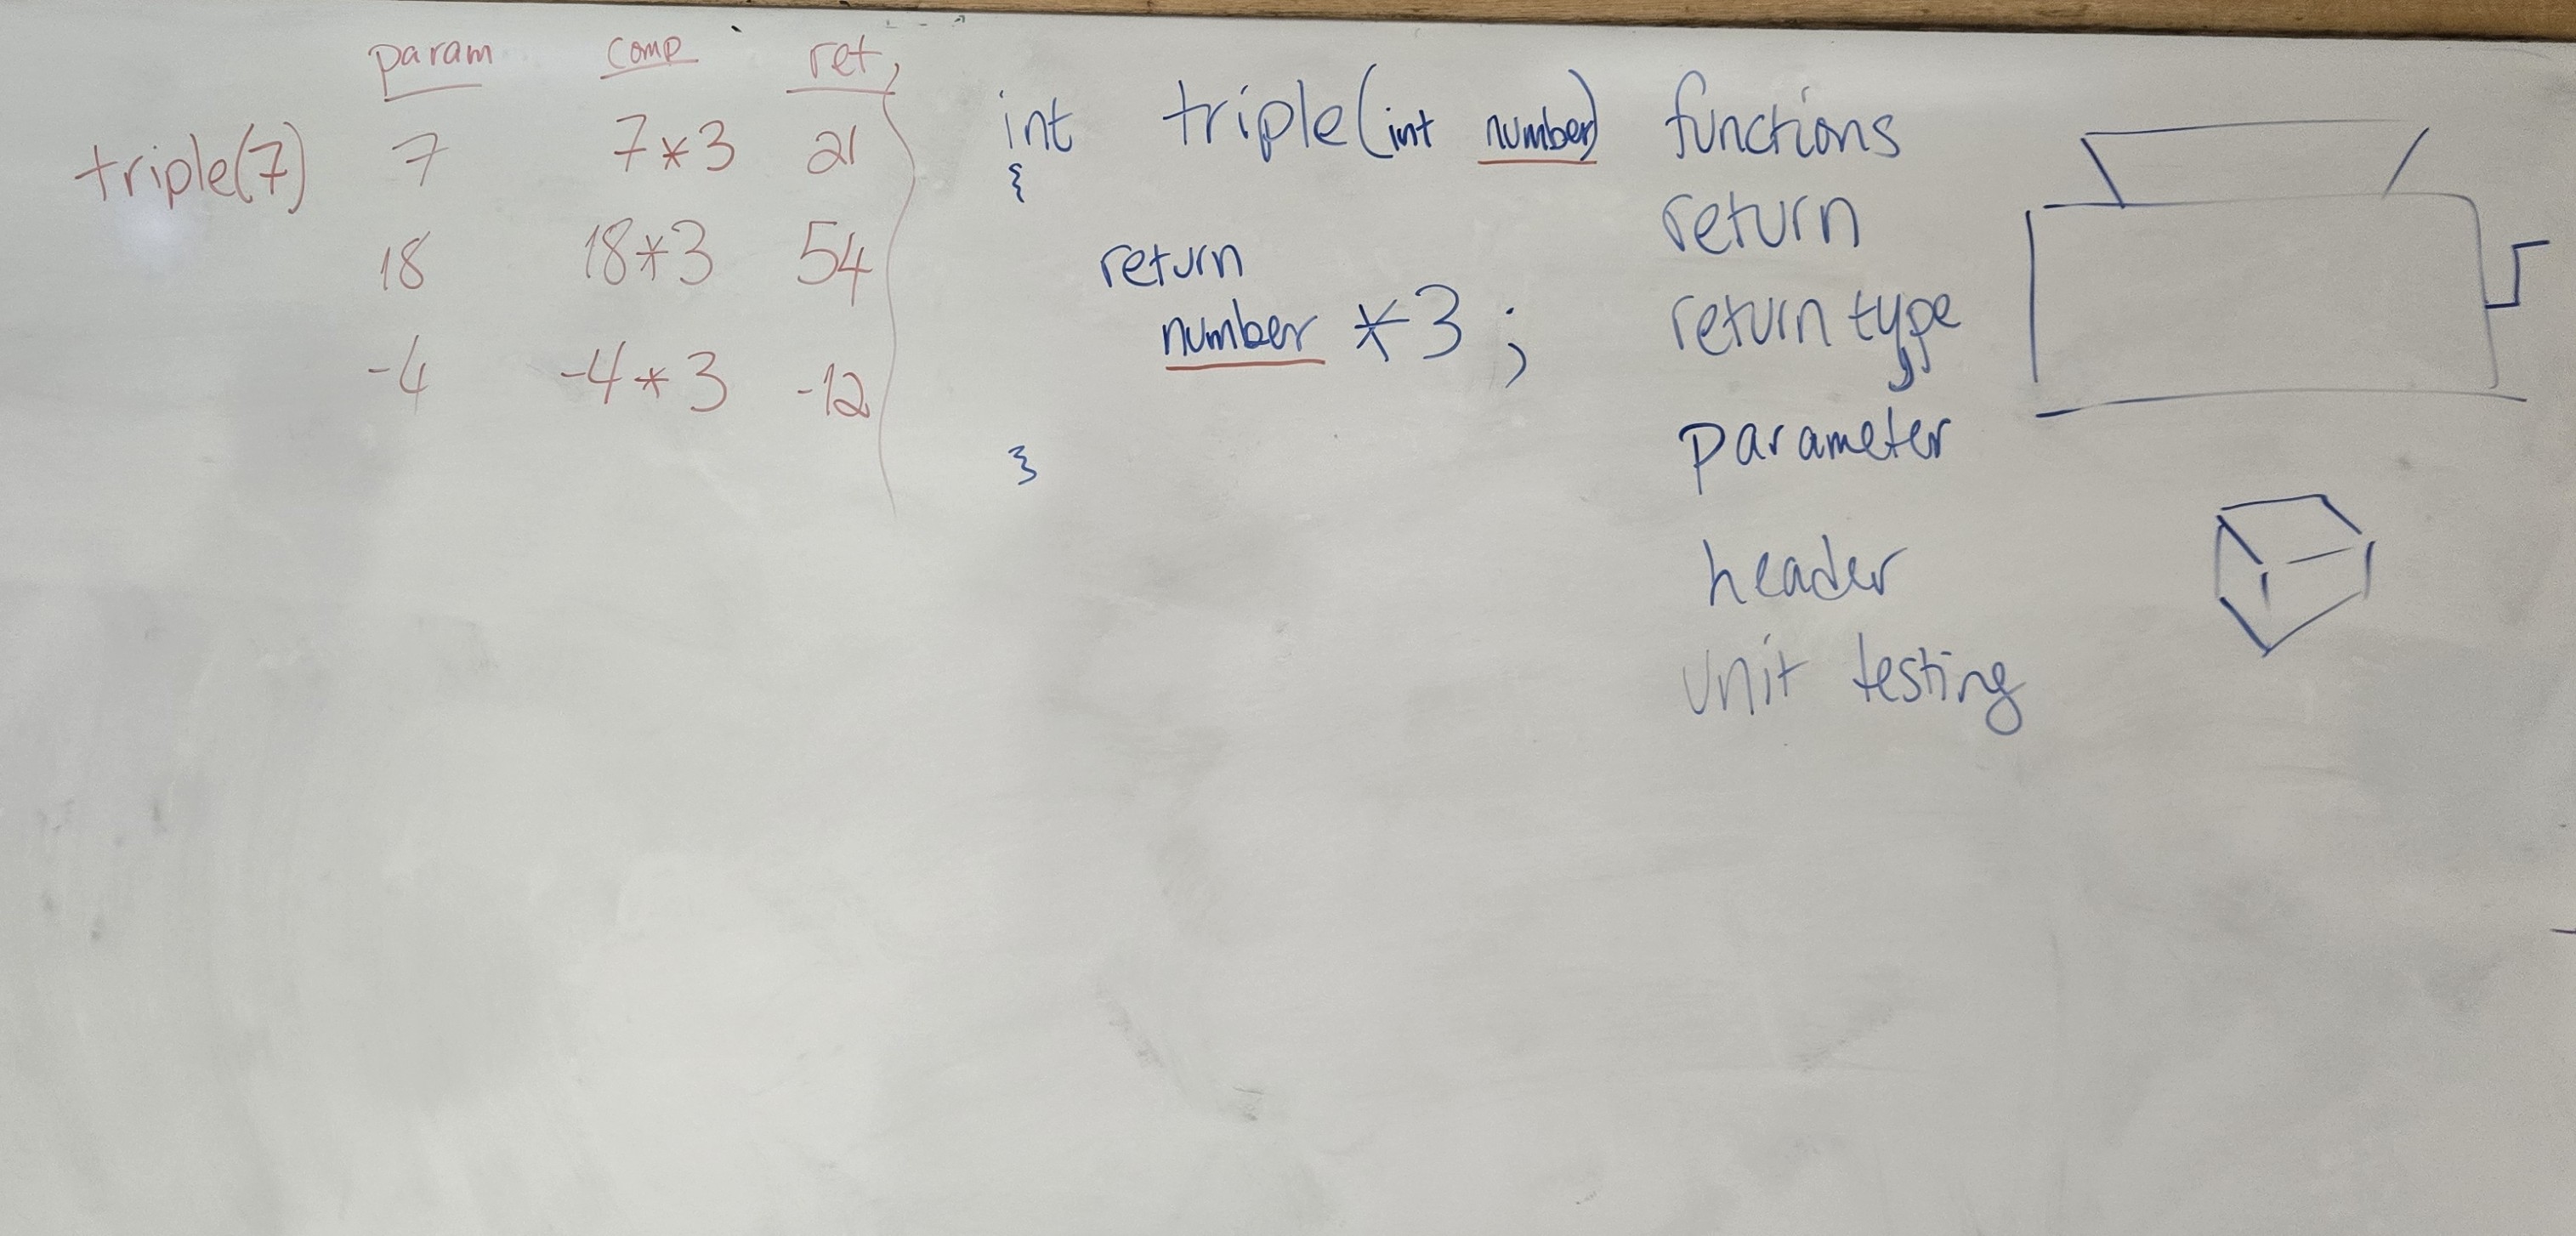 param comp ret
triple(7) 7 7*3 21
18 18*3 54
-4 -4*3 -12
int triple(int number)
{
return
number *3;
}
functions
return
return type
parameter
header
unit testing